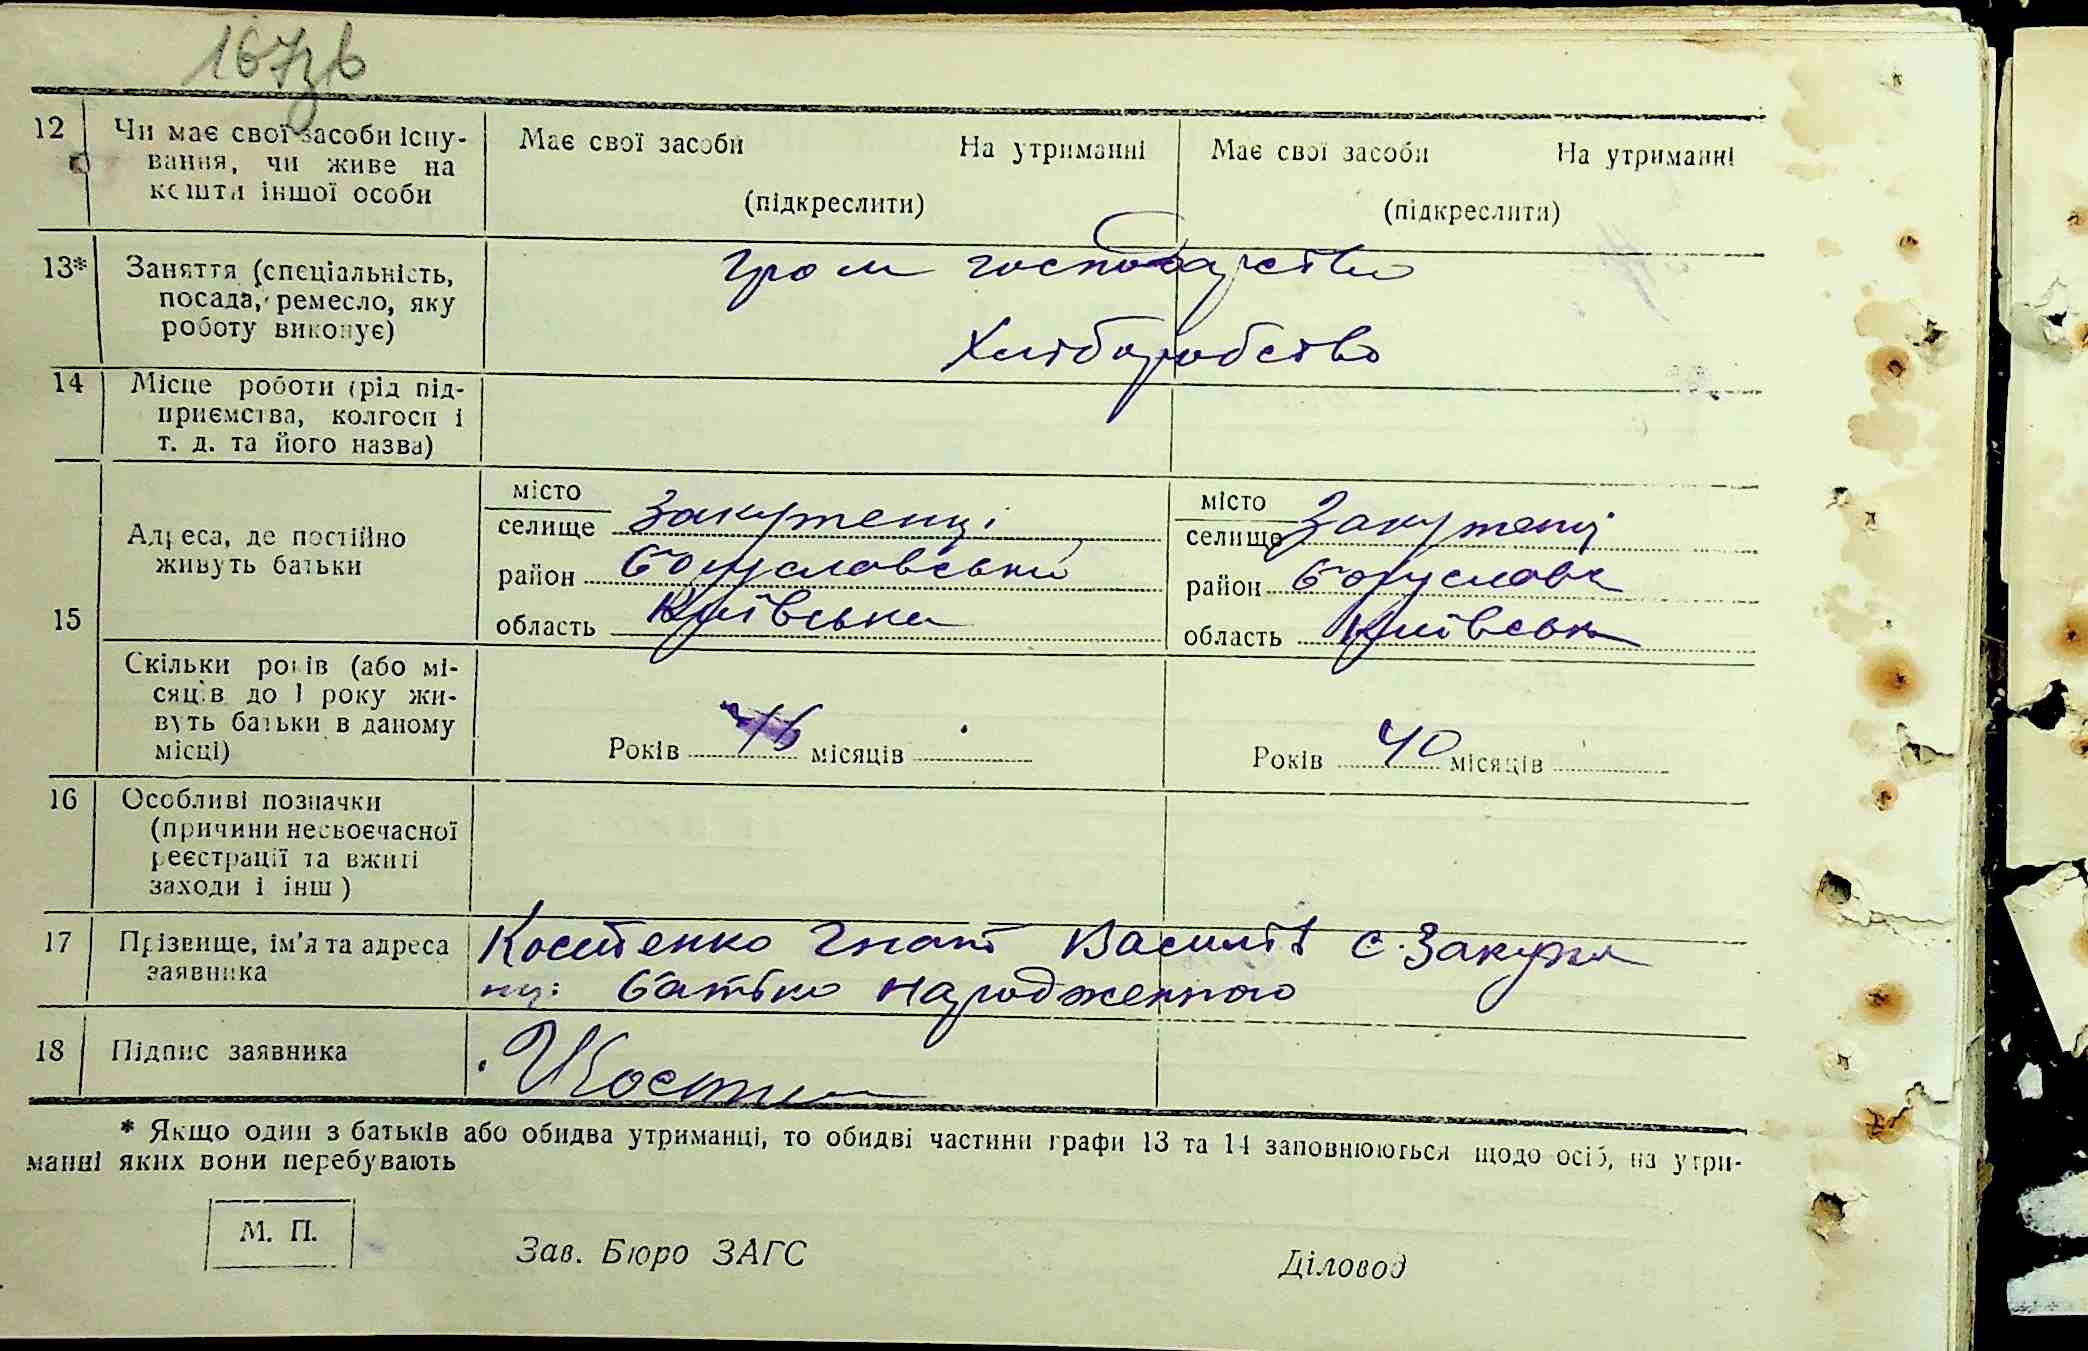 167зв
12 Чи має свої засоби існу-
вання, чи живе на
кошти іншої особи
Має свої засоби На утриманні
(підкреслити)
Має свої засоби На утриманні
(підкреслити)
13* Заняття (спеціальність,
посада, ремесло, яку
роботу виконує)
гром господарство
Хліборобство
14 Місце роботи (рід під-
приємства, колгосп і
т. д. та його назва)
15 Адреса, де постійно
живуть батьки
місто
селище Закутенці
район Богуславський
область Київська
місто
селище Закутенці
район Богуславс
область Київськ
Скільки років (або мі-
сяців до 1 року жи-
вуть батьки в даному
місці)
Років 46 місяців
Років 40 місяців
16 Особливі позначки
(причини несвоєчасної
реєстрації та вжиті
заходи і інш)
17 Прізвище, ім'я та адреса
заявника
Костенко Гнат Василів с. Закуте
нці батько народженного
18 Підпис заявника
* Якщо один з батьків або обидва утриманці, то обидві частини графи 13 та 14 заповнюються щодо осіб, на утри-
манні яких вони перебувають
М. П.
Зав. Бюро ЗАГС
Діловод